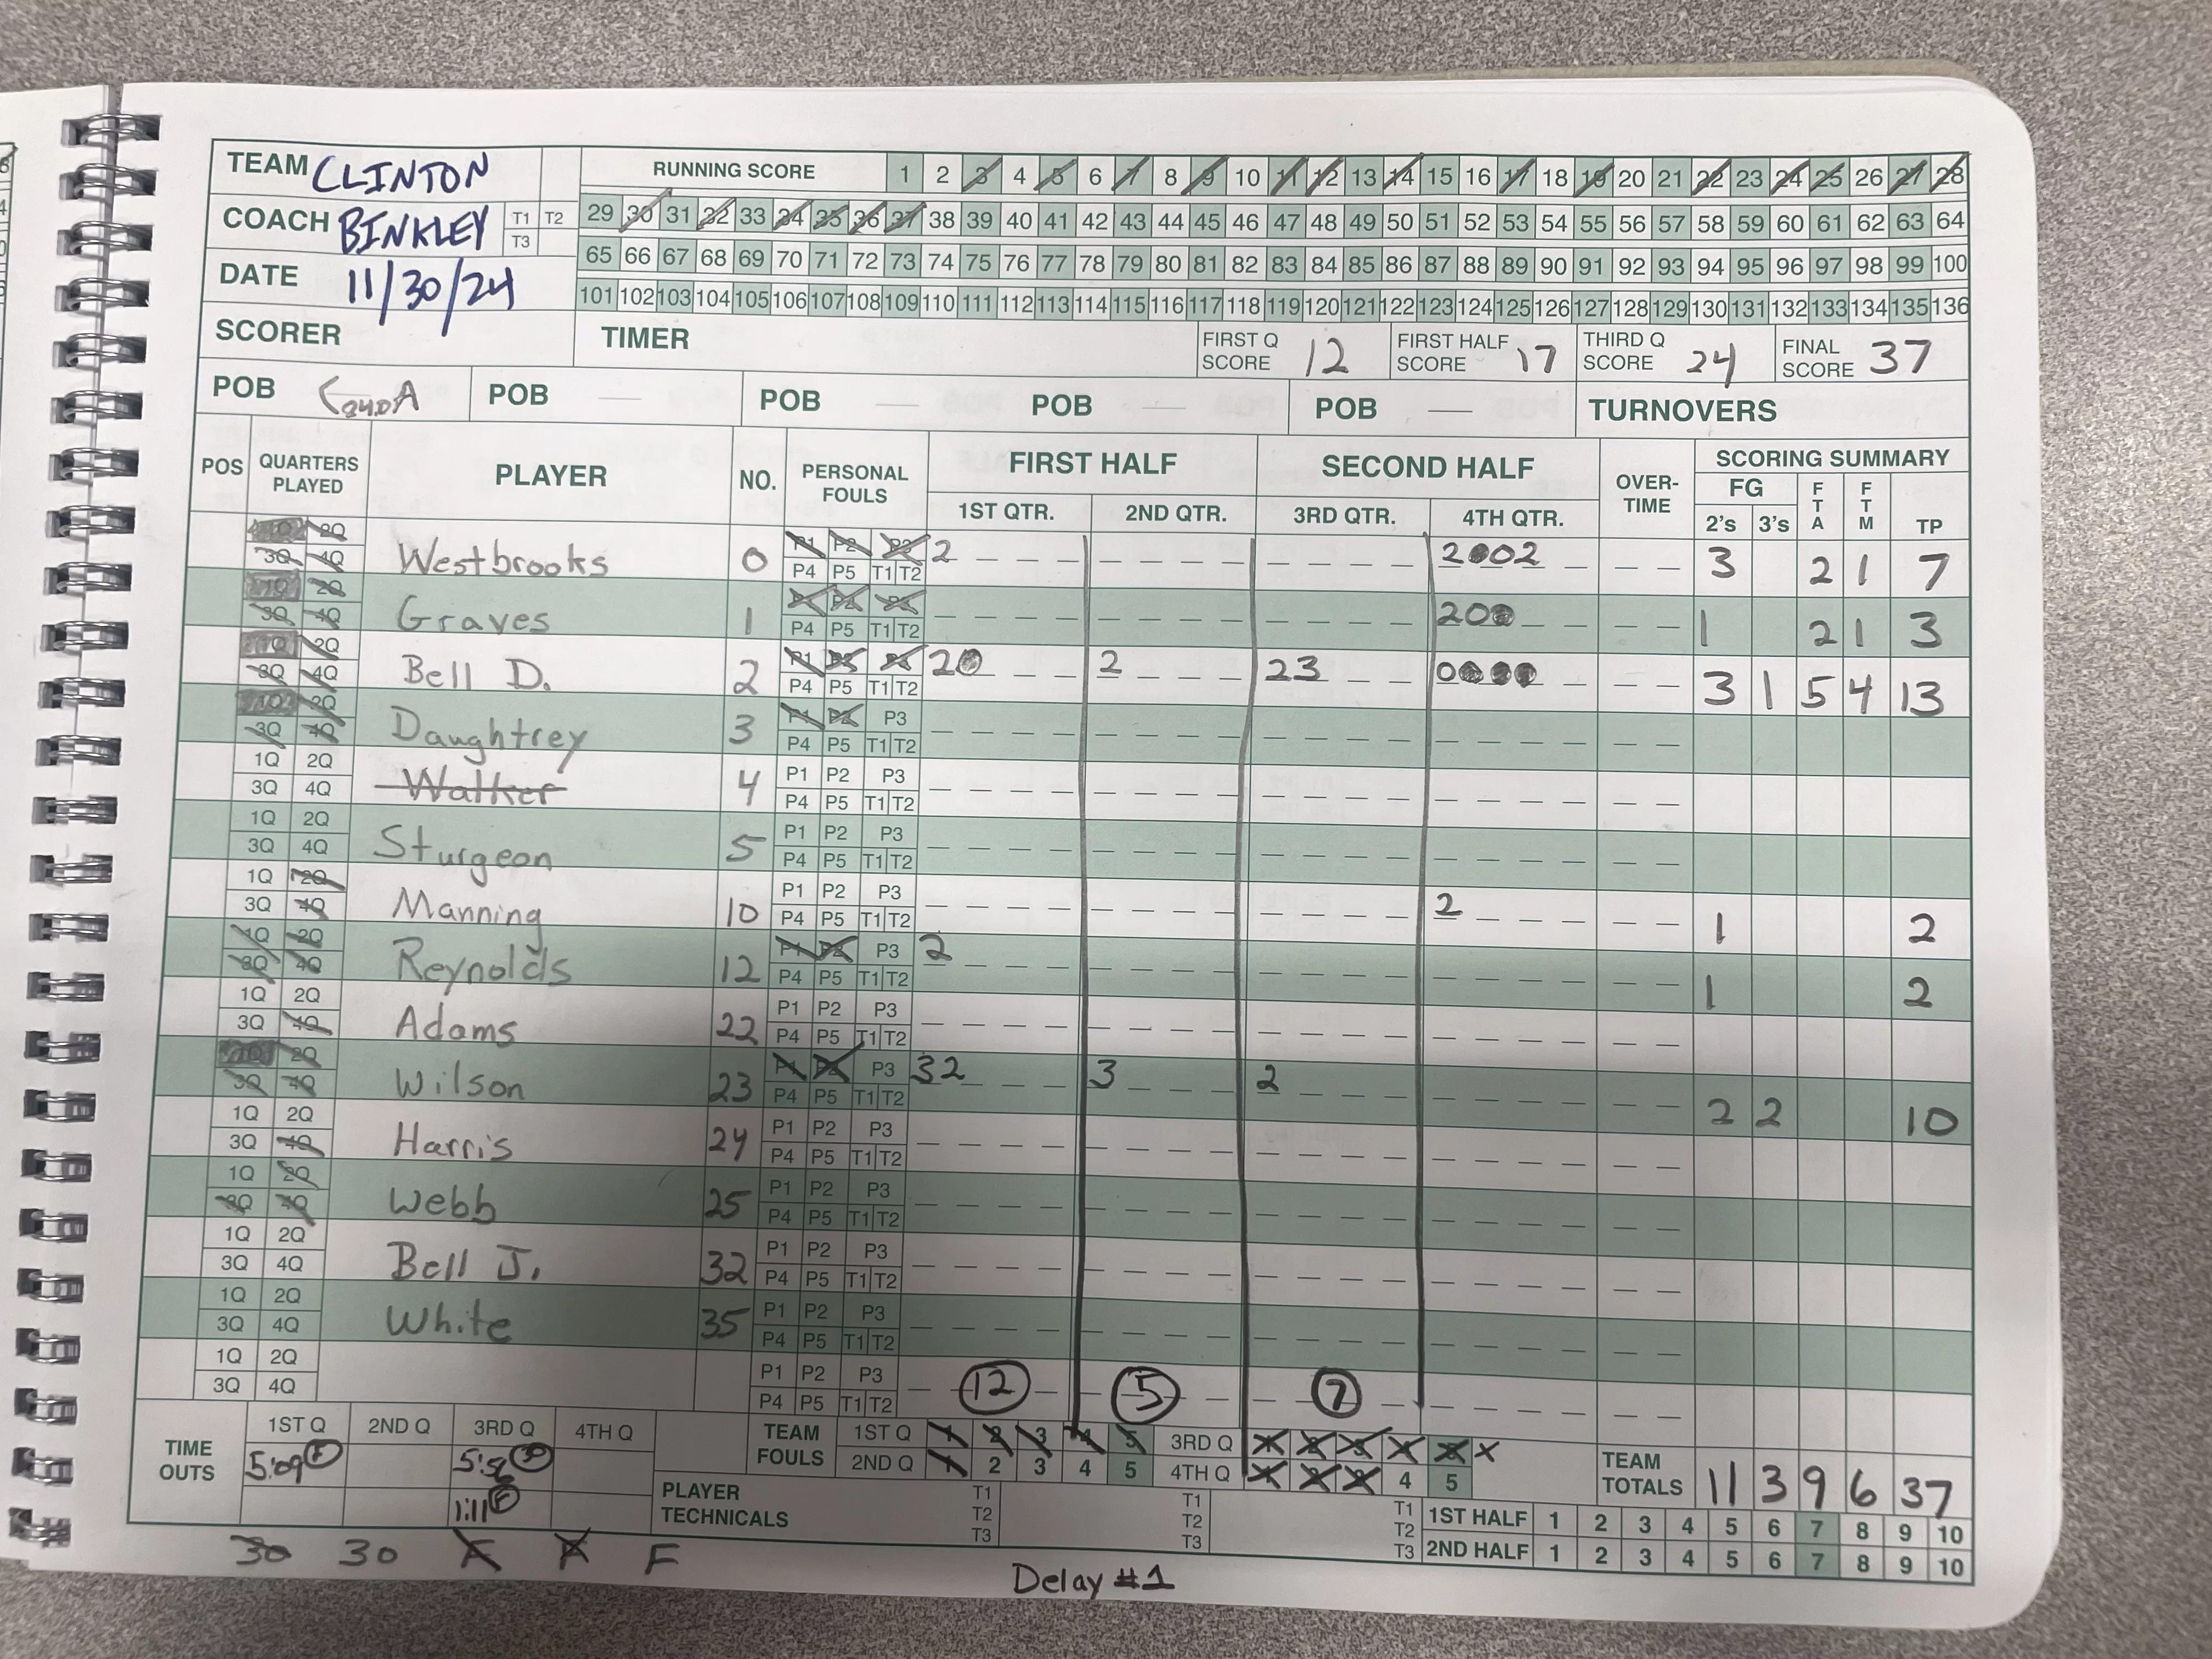 TEAM CLINTON
COACH BINKLEY T1 T2 T3
DATE 11/30/24
RUNNING SCORE 1 2 3 4 5 6 7 8 9 10 11 12 13 14 15 16 17 18 19 20 21 22 23 24 25 26 27 28
29 30 31 32 33 34 35 36 37 38 39 40 41 42 43 44 45 46 47 48 49 50 51 52 53 54 55 56 57 58 59 60 61 62 63 64
65 66 67 68 69 70 71 72 73 74 75 76 77 78 79 80 81 82 83 84 85 86 87 88 89 90 91 92 93 94 95 96 97 98 99 100
101 102 103 104 105 106 107 108 109 110 111 112 113 114 115 116 117 118 119 120 121 122 123 124 125 126 127 128 129 130 131 132 133 134 135 136
SCORER TIMER FIRST Q SCORE 12 FIRST HALF SCORE 17 THIRD Q SCORE 24 FINAL SCORE 37
POB POB — POB — POB — POB — TURNOVERS
POS QUARTERS PLAYED PLAYER NO. PERSONAL FOULS FIRST HALF SECOND HALF OVER-TIME SCORING SUMMARY
1ST QTR. 2ND QTR. 3RD QTR. 4TH QTR. FG 2's 3's FTA FTM TP
2Q 3Q 4Q Westbrooks 0 P1 P2 P3 P4 P5 T1 T2 2 2 0 0 2 3 2 1 7
1Q 2Q 3Q 4Q Graves 1 P1 P2 P3 P4 P5 T1 T2 2 0 0 1 2 1 3
1Q 2Q 3Q 4Q Bell D. 2 P1 P2 P3 P4 P5 T1 T2 2 0 2 2 3 0 0 0 0 3 1 5 4 13
1Q 2Q 3Q 4Q Daughtrey 3 P1 P2 P3 P4 P5 T1 T2
1Q 2Q 3Q 4Q Walker 4 P1 P2 P3 P4 P5 T1 T2
1Q 2Q 3Q 4Q Sturgeon 5 P1 P2 P3 P4 P5 T1 T2
1Q 2Q 3Q 4Q Manning 10 P1 P2 P3 P4 P5 T1 T2 2 1 2
1Q 2Q 3Q 4Q Reynolds 12 P1 P2 P3 P4 P5 T1 T2 2 1 2
1Q 2Q 3Q 4Q Adams 22 P1 P2 P3 P4 P5 T1 T2
2Q 3Q 4Q Wilson 23 P1 P2 P3 P4 P5 T1 T2 3 2 3 2 2 2 10
1Q 2Q 3Q 4Q Harris 24 P1 P2 P3 P4 P5 T1 T2
1Q 2Q 3Q 4Q Webb 25 P1 P2 P3 P4 P5 T1 T2
1Q 2Q 3Q 4Q Bell J. 32 P1 P2 P3 P4 P5 T1 T2
1Q 2Q 3Q 4Q White 35 P1 P2 P3 P4 P5 T1 T2
1Q 2Q 3Q 4Q P1 P2 P3 P4 P5 T1 T2 12 5 7
TIME OUTS 1ST Q 2ND Q 3RD Q 4TH Q
5:09 F 5:56 30
1:11 F
TEAM FOULS 1ST Q 1 2 3 4 5 3RD Q 1 2 3 4 5 X
2ND Q 1 2 3 4 5 4TH Q 1 2 3 4 5
TEAM TOTALS 11 3 9 6 37
PLAYER TECHNICALS T1 T2 T3 T1 T2 T3 T1 T2 T3
1ST HALF 1 2 3 4 5 6 7 8 9 10
2ND HALF 1 2 3 4 5 6 7 8 9 10
30 30 F F F
Delay #1